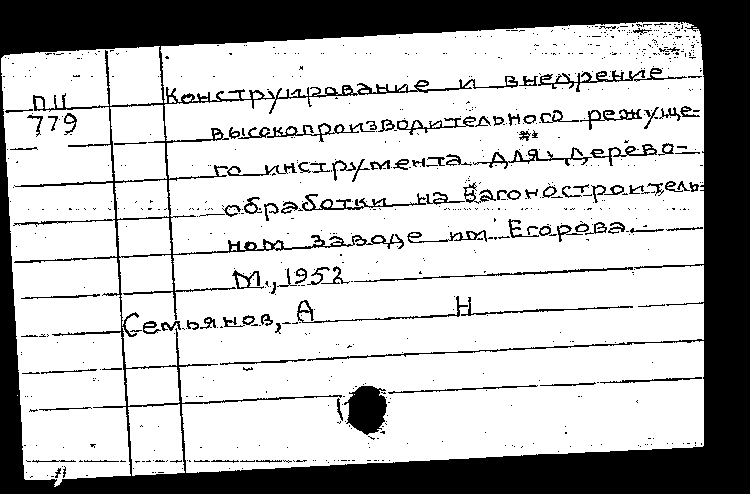 Конструирование и внедрение
ПII
779
высокопроизводительного режуще-
го инструмента для дерево-
обработки на Вагоностроитель-
ном заводе им Егорова.
М., 1952
Семьянов, А Н